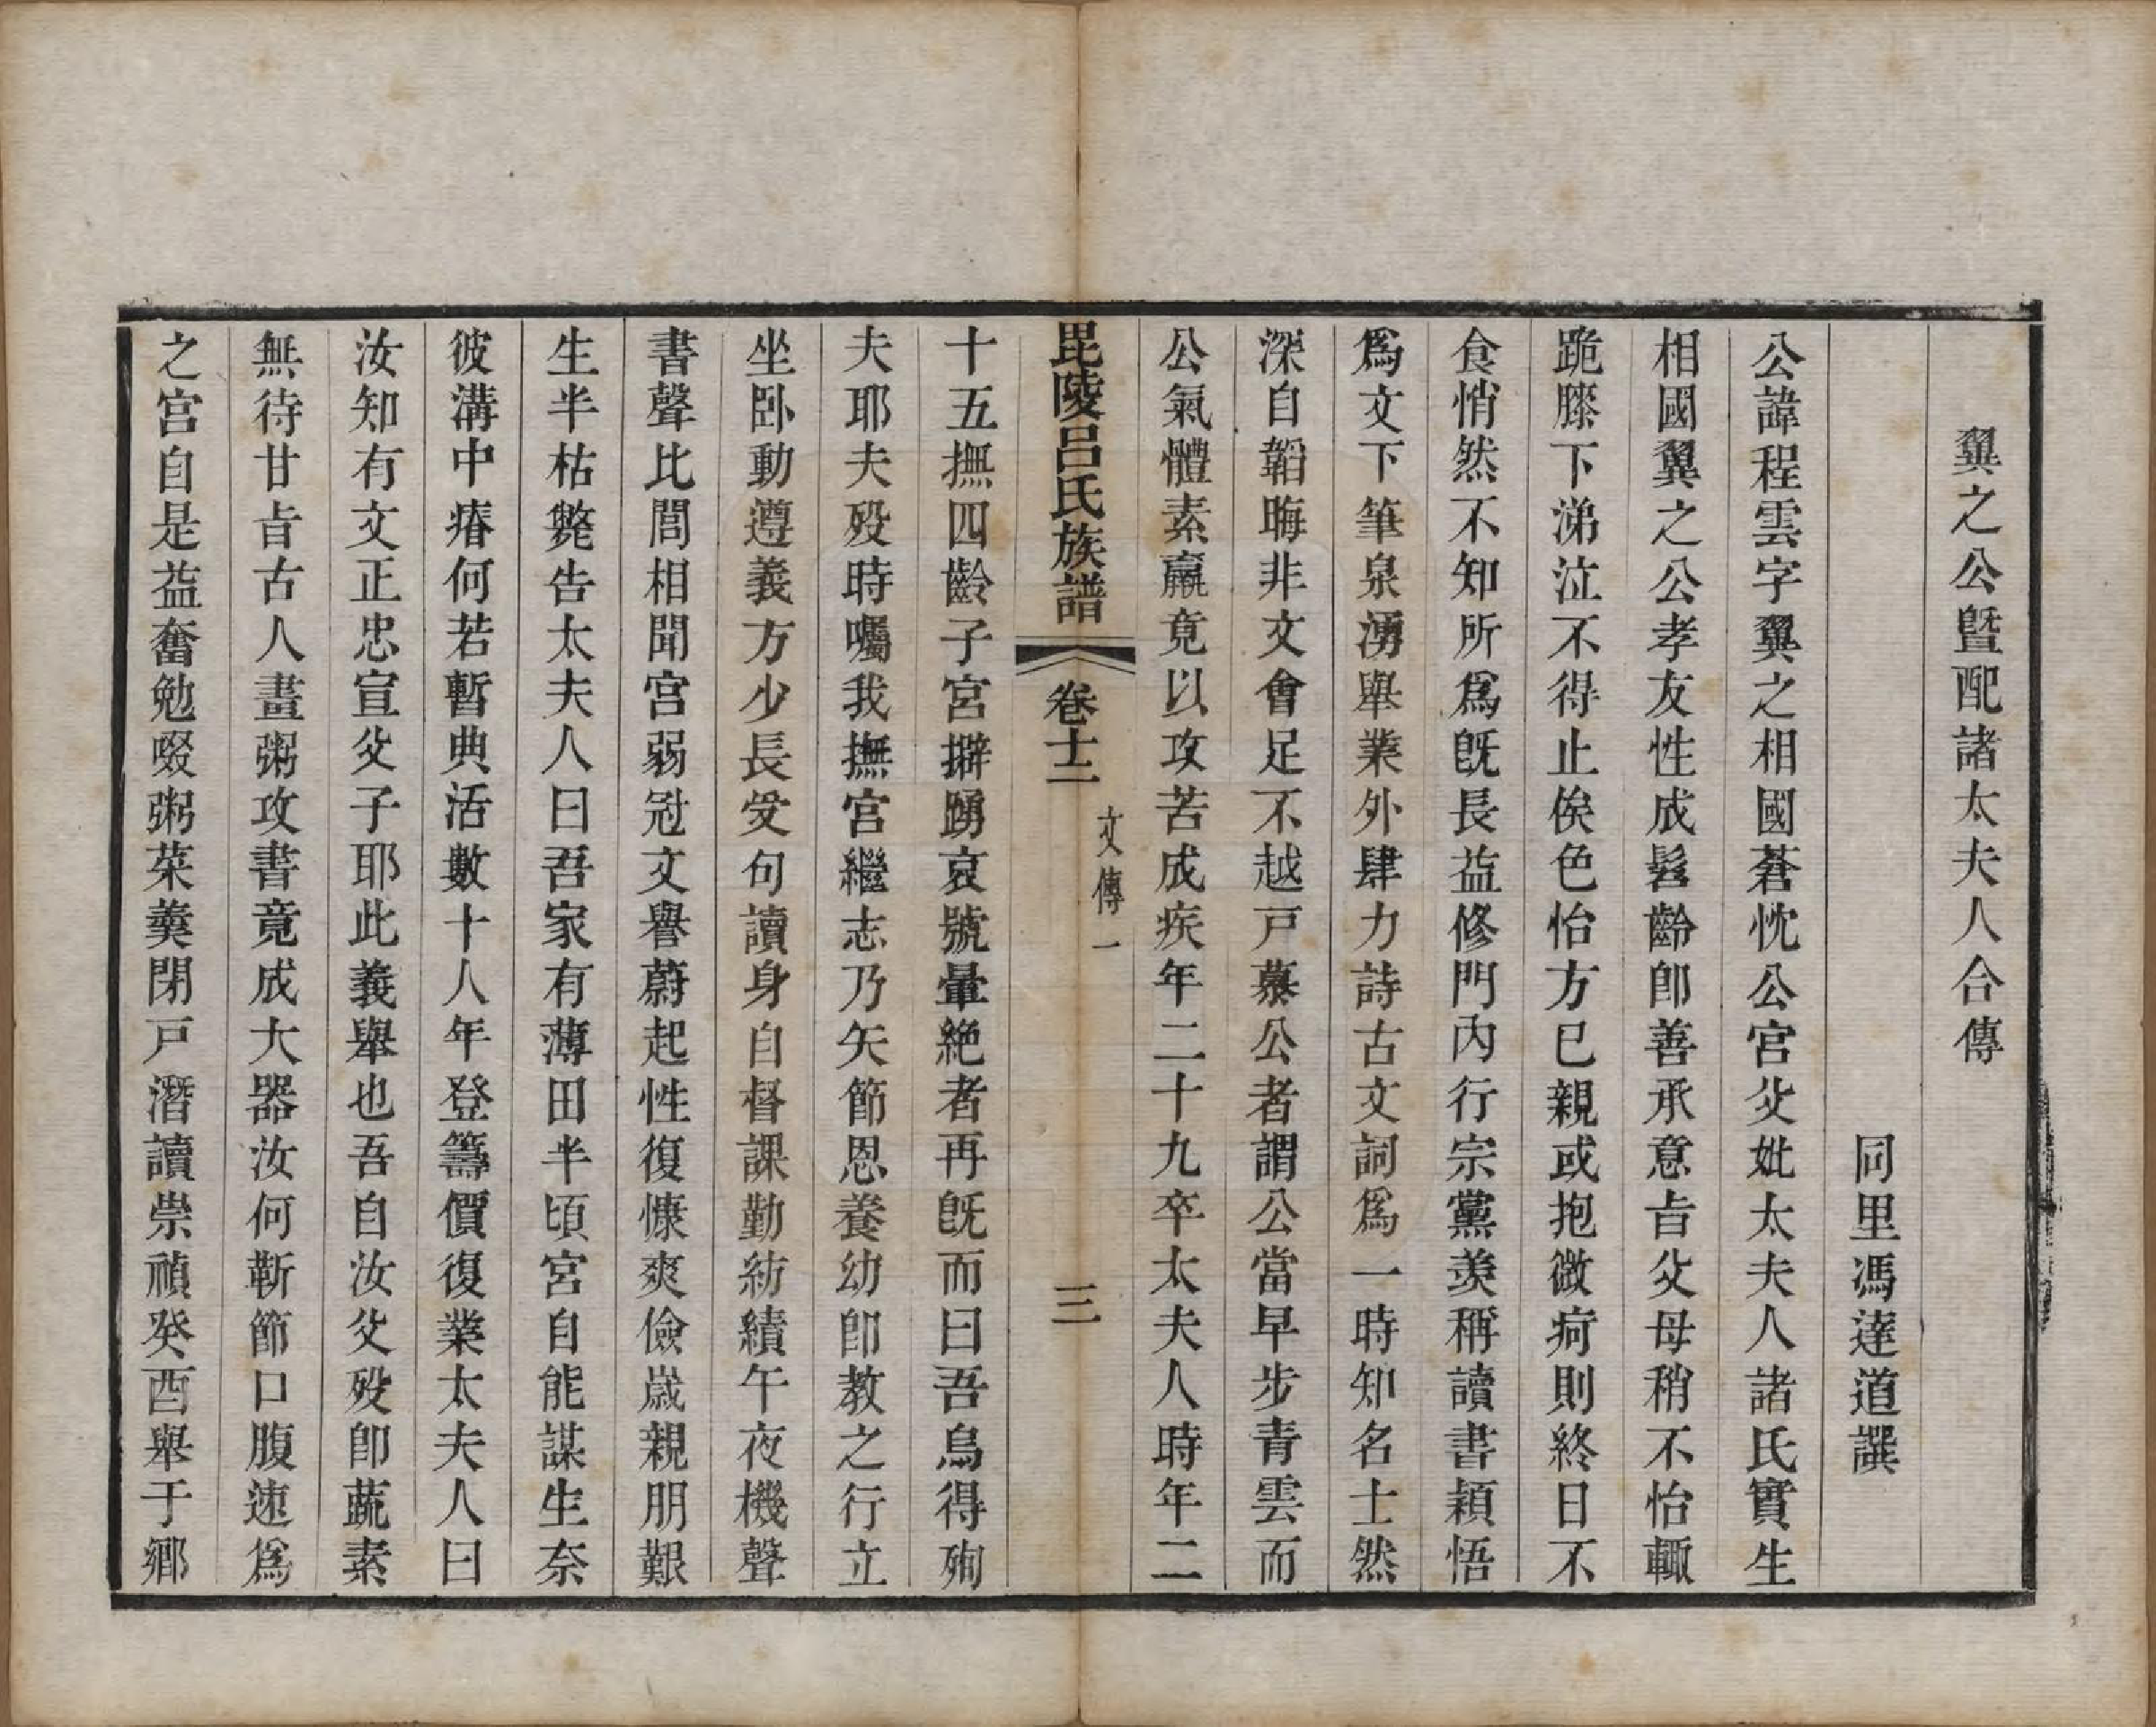 翼之公曁配諸太夫人合傳
同里馮達道譔
公諱程雲字翼之相國蒼忱公宮父妣太夫人諸氏實生
相國翼之公孝友性成髫齡卽善承意旨父母稍不怡輙
跪膝下涕泣不得止俟色怡方已親或抱微疴則終日不
食悄然不知所爲旣長益修門內行宗黨羨稱讀書穎悟
爲文下筆泉湧舉業外肆力詩古文詞爲一時知名士然
深自韜晦非文會足不越戸慕公者謂公當早步青雲而
公氣體素羸竟以攻苦成疾年二十九卒太夫人時年二
毘陵呂氏族譜 卷十二 文傳一 三
十五撫四齡子宮擗踴哀號暈絶者再旣而曰吾烏得殉
夫耶夫歿時囑我撫宮繼志乃矢節恩養幼卽教之行立
坐臥動遵義方少長受句讀身自督課勤紡績午夜機聲
書聲比閭相聞宮弱冠文譽蔚起性復慷爽儉歲親朋艱
生半枯斃告太夫人曰吾家有薄田半頃宮自能謀生奈
彼溝中瘠何若暫典活數十人年登籌價復業太夫人曰
汝知有文正忠宣父子耶此義舉也吾自汝父歿卽蔬素
無待甘旨古人畫粥攻書竟成大器汝何靳節口腹速爲
之宮自是益奮勉啜粥茱羹閉戸潛讀崇禎癸酉舉于鄉